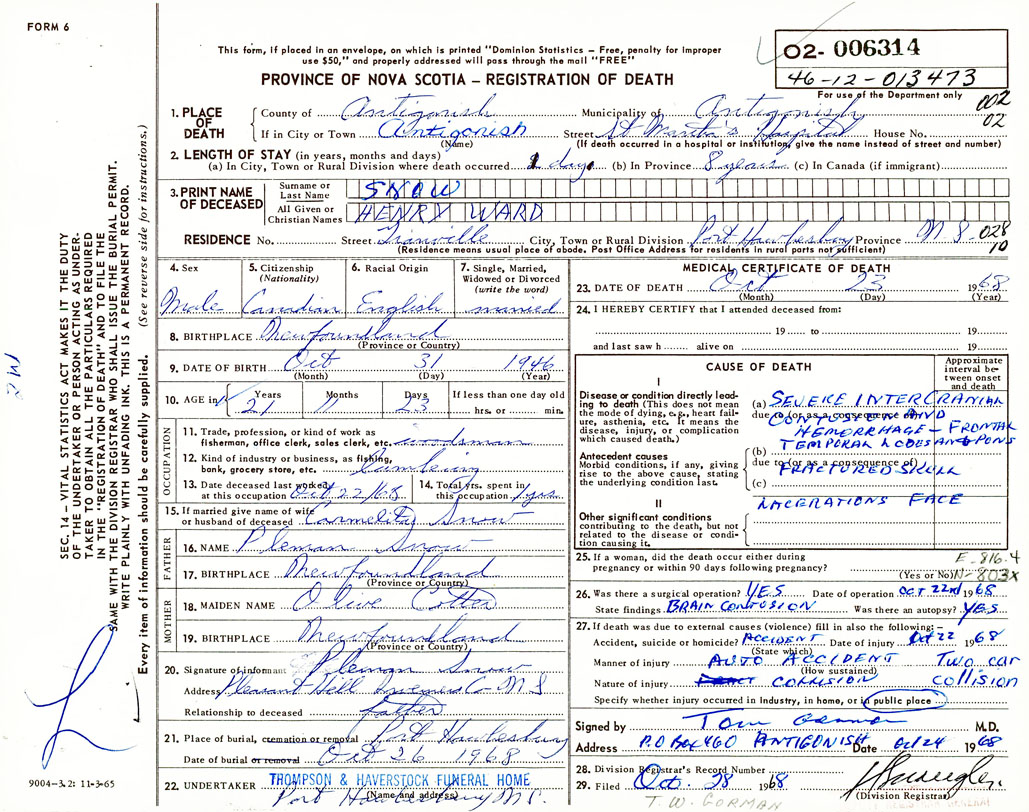 FORM 6
This form, if placed in an envelope, on which is printed "Dominion Statistics – Free, penalty for improper
use $50," and properly addressed will pass through the mail "FREE"
PROVINCE OF NOVA SCOTIA – REGISTRATION OF DEATH
02- 006314
46-12-013473
For use of the Department only
002
02
1. PLACE OF DEATH
County of Antigonish Municipality of Antigonish
If in City or Town Antigonish Street St Martha's Hospital House No.
(Name) (If death occurred in a hospital or institution, give the name instead of street and number)
2. LENGTH OF STAY (in years, months and days)
(a) In City, Town or Rural Division where death occurred 1 day (b) In Province 8 years (c) In Canada (if immigrant)
3. PRINT NAME OF DECEASED
Surname or Last Name SNOW
All Given or Christian Names HENRY WARD
RESIDENCE No. Street City, Town or Rural Division Port Hawkesbury Province N S - 028
10
(Residence means usual place of abode, Post Office Address for residents in rural parts not sufficient)
4. Sex
Male
5. Citizenship (Nationality)
Canadian
6. Racial Origin
English
7. Single, Married, Widowed or Divorced (write the word)
married
8. BIRTHPLACE Newfoundland
(Province or Country)
9. DATE OF BIRTH Oct 31 1946
(Month) (Day) (Year)
10. AGE in Years Months Days If less than one day old
21 11 23 hrs. or min.
OCCUPATION
11. Trade, profession, or kind of work as
fisherman, office clerk, sales clerk, etc. woodsman
12. Kind of industry or business, as fishing,
bank, grocery store, etc. Lumbering
13. Date deceased last worked
at this occupation Oct 22/68
14. Total yrs. spent in
this occupation 1 yrs
15. If married give name of wife
or husband of deceased Carmelita Snow
FATHER
16. NAME Pleman Snow
17. BIRTHPLACE Newfoundland
(Province or Country)
MOTHER
18. MAIDEN NAME Olive Cotter
19. BIRTHPLACE Newfoundland
(Province or Country)
20. Signature of informant Pleman Snow
Address Pleasant Hill Inverness Co- N S
Relationship to deceased father
21. Place of burial, cremation or removal Port Hawkesbury
Date of burial or removal Oct 26 1968
22. UNDERTAKER THOMPSON & HAVERSTOCK FUNERAL HOME
(Name and address)
Port Hawkesbury N.S.
MEDICAL CERTIFICATE OF DEATH
23. DATE OF DEATH Oct 23 1968
(Month) (Day) (Year)
24. I HEREBY CERTIFY that I attended deceased from:
19 to 19
and last saw h alive on 19
CAUSE OF DEATH
Approximate interval between onset and death
I
Disease or condition directly leading to death (This does not mean the mode of dying, e.g., heart failure, asthenia, etc. It means the disease, injury, or complication which caused death.)
(a) SEVERE INTERCRANIAL
due to (or as a consequence of)
CONTUSION AND
HEMORRHAGE - FRONTAL
TEMPORAL LOBES AND PONS
Antecedent causes
Morbid conditions, if any, giving rise to the above cause, stating the underlying condition last.
(b)
due to (or as a consequence of)
FRACTURED SKULL
(c)
II
Other significant conditions contributing to the death, but not related to the disease or condition causing it.
LACERATIONS FACE
25. If a woman, did the death occur either during
pregnancy or within 90 days following pregnancy?
(Yes or No)
E-816.4
N-803x
26. Was there a surgical operation? YES Date of operation OCT 22nd 1968
State findings BRAIN CONTUSION Was there an autopsy? YES
27. If death was due to external causes (violence) fill in also the following:–
Accident, suicide or homicide? ACCIDENT Date of injury Oct 22 1968
(State which)
Manner of injury AUTO ACCIDENT TWO CAR
(How sustained)
Nature of injury COLLISION Collision
Specify whether injury occurred in industry, in home, or in public place
Signed by Tom Gorman M.D.
Address P.O Box 460 ANTIGONISH Date Oct 24 1968
28. Division Registrar's Record Number
29. Filed Oct. 28 1968
(Division Registrar)
T. W. GORMAN
9004-3.2: 11-3-65
SEC. 14 – VITAL STATISTICS ACT MAKES IT THE DUTY
OF THE UNDERTAKER OR PERSON ACTING AS UNDERTAKER TO OBTAIN ALL THE PARTICULARS REQUIRED
IN THE "REGISTRATION OF DEATH" AND TO FILE THE
SAME WITH THE DIVISION REGISTRAR WHO SHALL ISSUE THE BURIAL PERMIT.
WRITE PLAINLY WITH UNFADING INK. THIS IS A PERMANENT RECORD.
Every item of information should be carefully supplied. (See reverse side for instructions.)